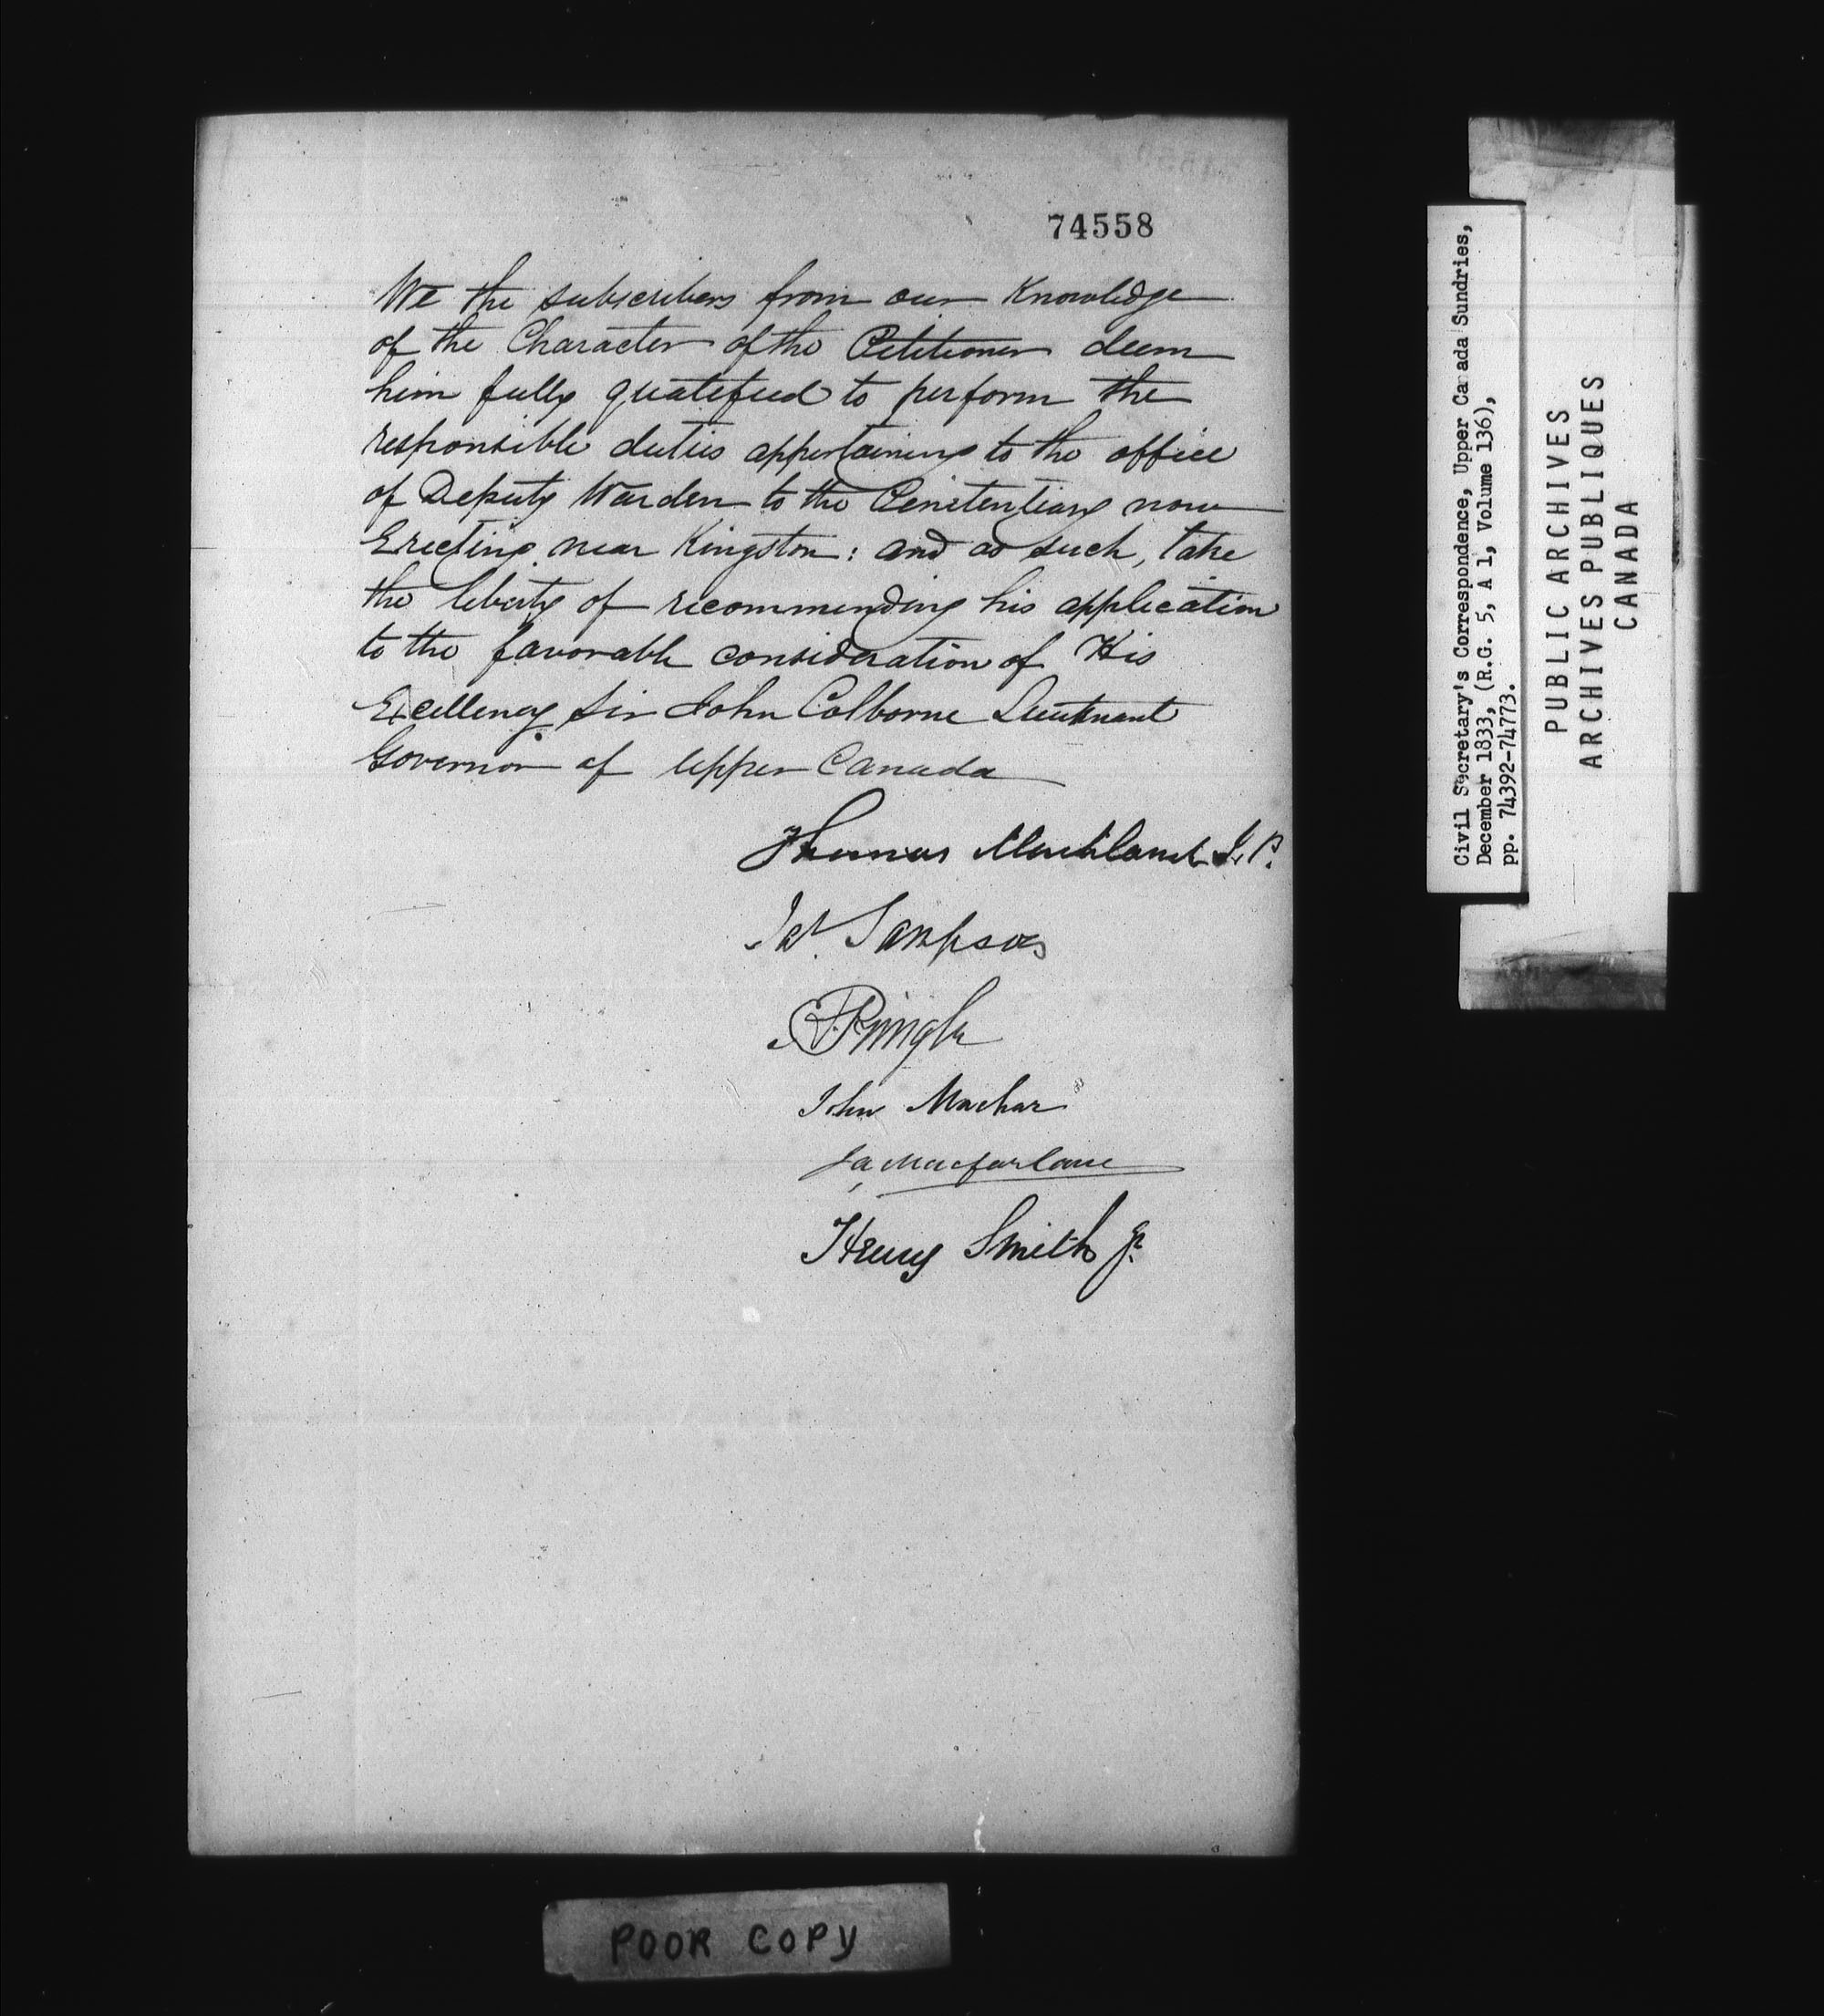 74558
We the subscribers from our Knowledge
of the Character of the Petitioner deem
him fully qualified to perform the
responsible duties appertaining to the office
of Deputy Warden to the Penitentiary now
Erecting near Kingston: and as such, take
the liberty of recommending his application
to the favorable consideration of His
Excellency Sir John Colborne Lieutenant
Governor of Upper Canada
Thomas Markland J.P.
Jas. Sampson
Pringle
John Machar
Ja Macfarlane
Henry Smith Jr.
Civil Secretary's Correspondence, Upper Canada Sundries,
December 1833, (R.G. 5, A 1, Volume 136),
pp. 74392-74773.
PUBLIC ARCHIVES
ARCHIVES PUBLIQUES
CANADA
POOR COPY